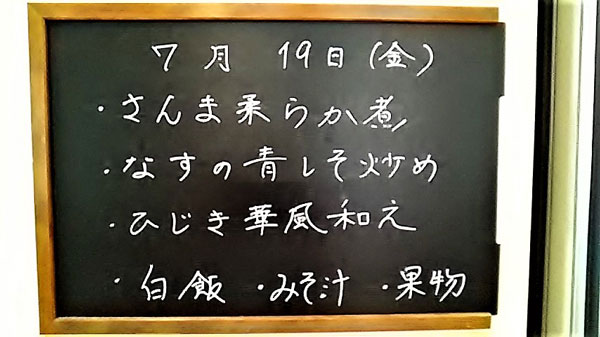 7月 19日(金)
・さんま柔らか煮
・なすの青しそ炒め
・ひじき華風和え
・白飯 ・みそ汁 ・果物